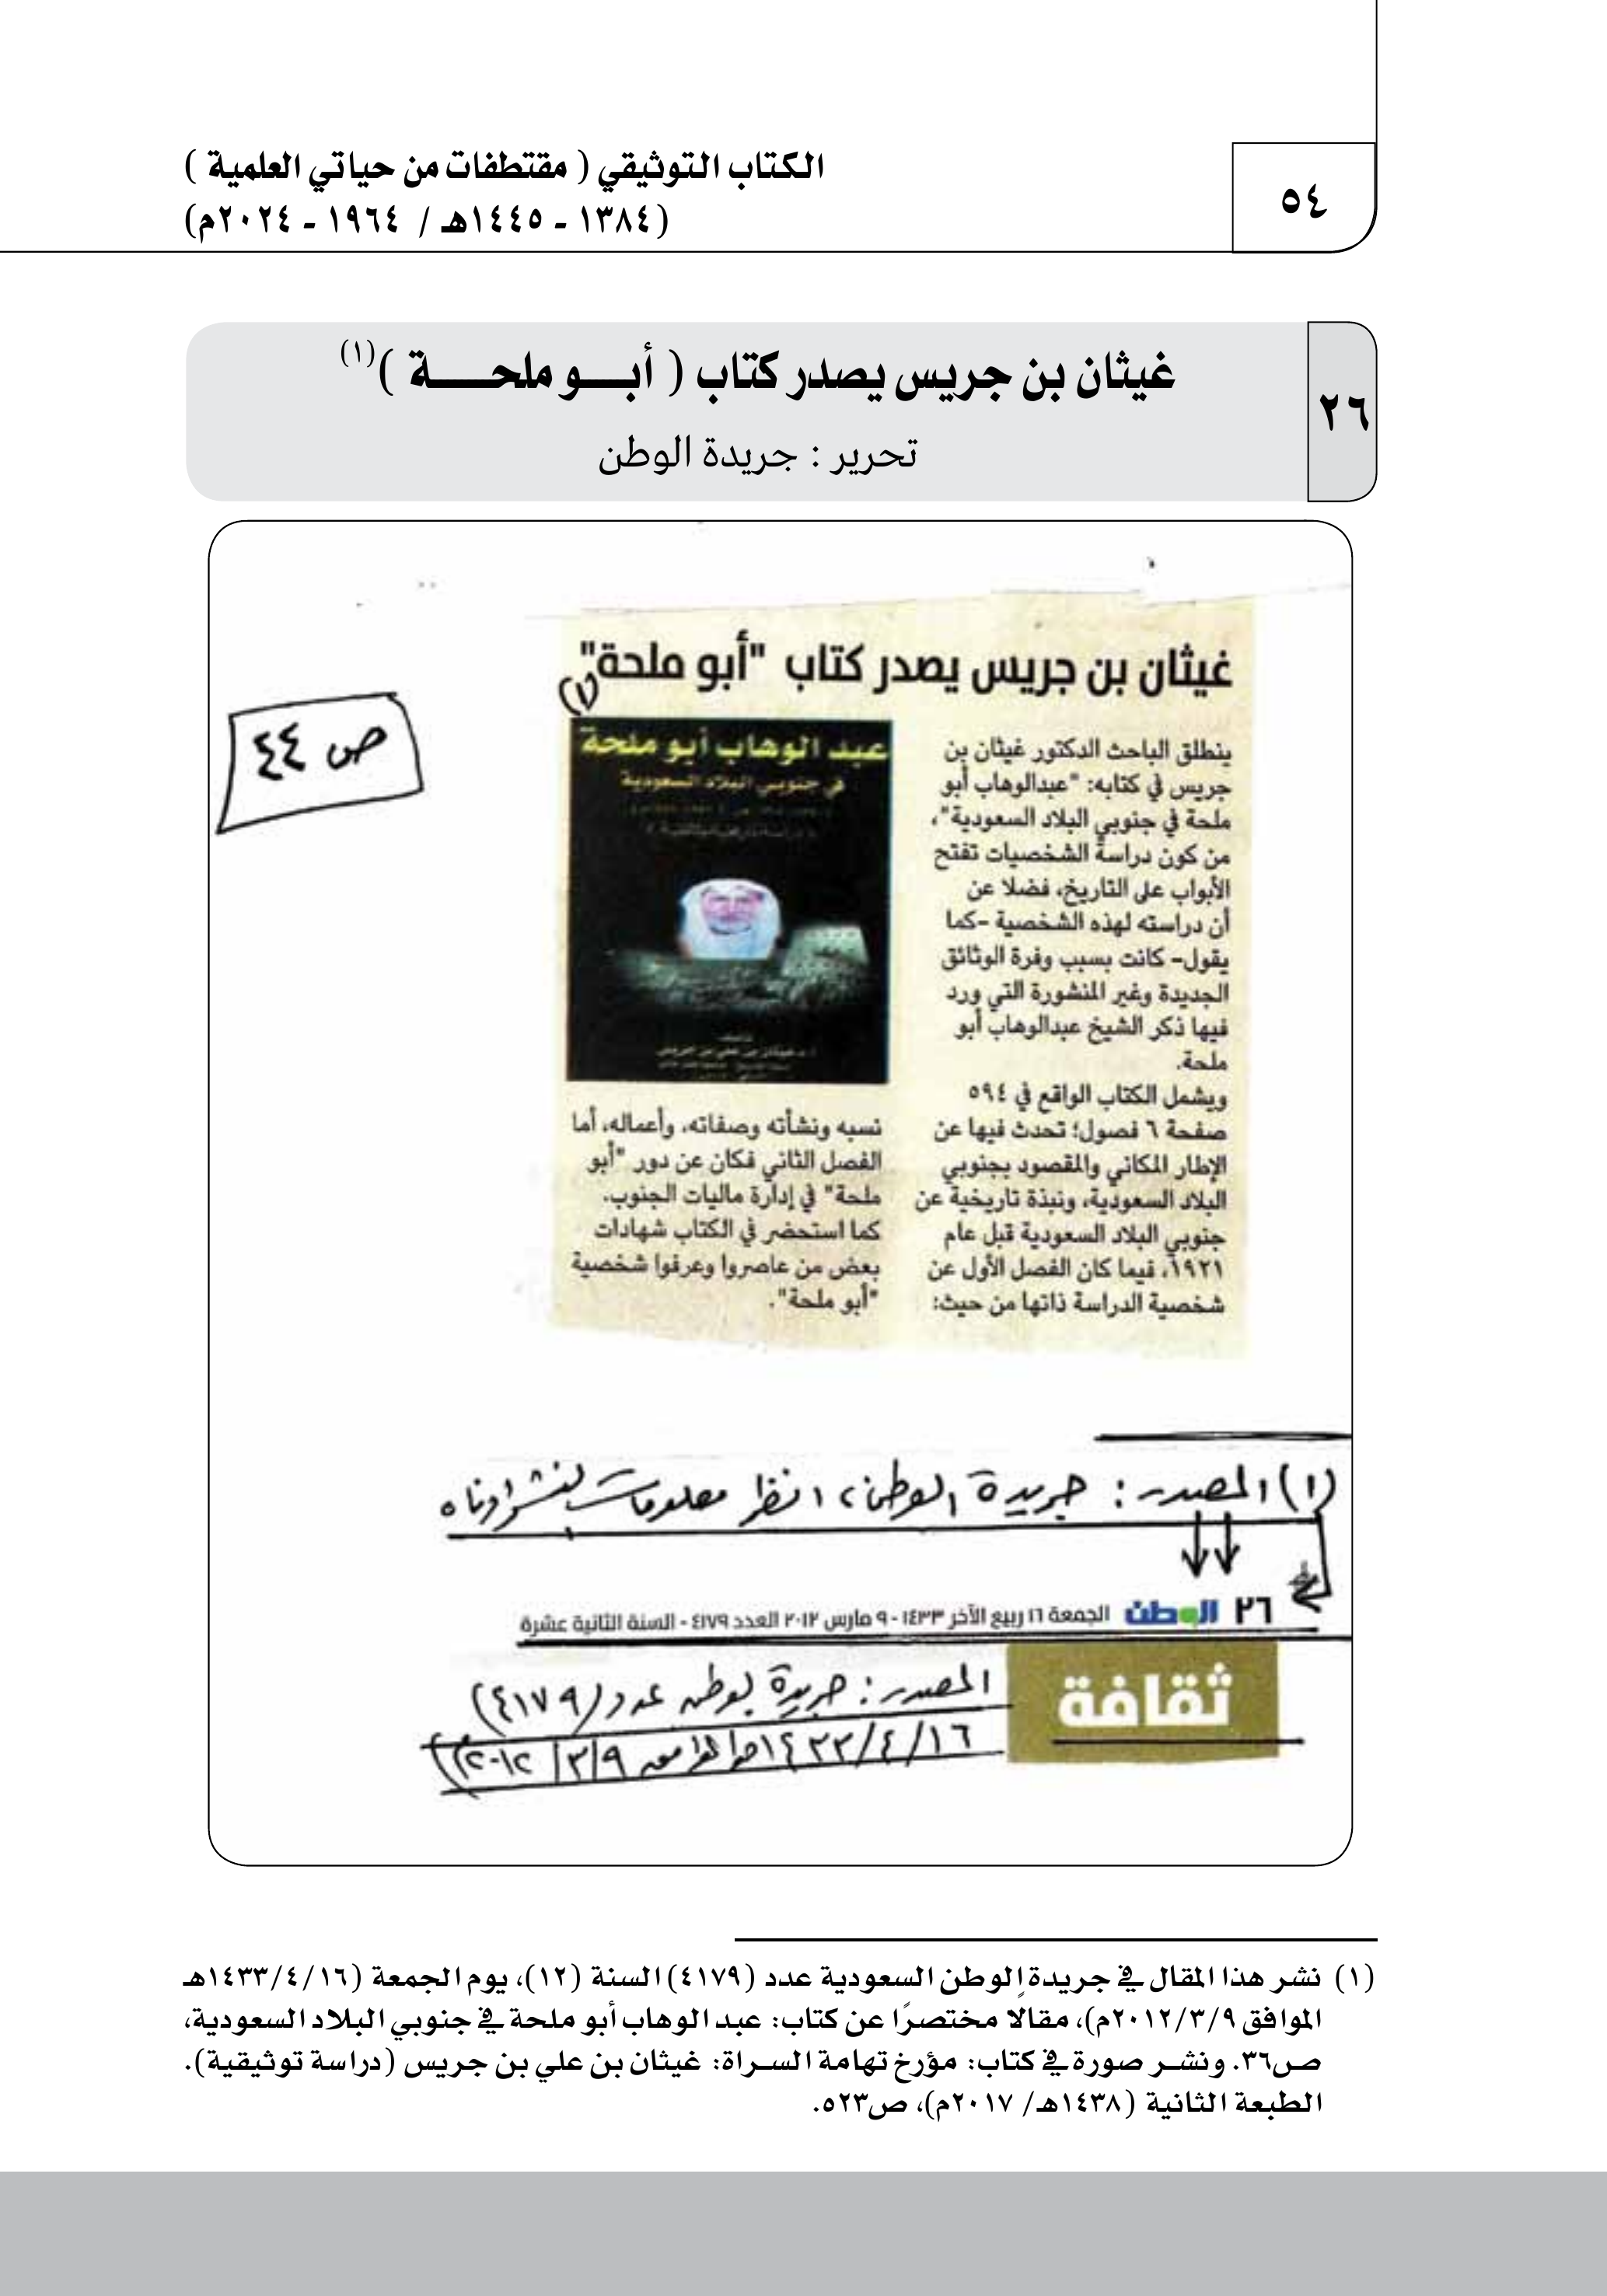 الكتاب التوثيقي ( مقتطفات من حياتي العلمية )
(١٣٨٤ - ١٤٤٥هـ / ١٩٦٤ - ٢٠٢٤م)
٥٤
٢٦
غيثان بن جريس يصدر كتاب ( أبـــو ملحــــة )(١)
تحرير : جريدة الوطن
غيثان بن جريس يصدر كتاب "أبو ملحة"
(١)
ص ٤٤
ينطلق الباحث الدكتور غيثان بن
جريس في كتابه: "عبدالوهاب أبو
ملحة في جنوبي البلاد السعودية"،
من كون دراسة الشخصيات تفتح
الأبواب على التاريخ، فضلا عن
أن دراسته لهذه الشخصية -كما
يقول- كانت بسبب وفرة الوثائق
الجديدة وغير المنشورة التي ورد
فيها ذكر الشيخ عبدالوهاب أبو
ملحة.
ويشمل الكتاب الواقع في ٥٩٤
صفحة ٦ فصول؛ تحدث فيها عن
الإطار المكاني والمقصود بجنوبي
البلاد السعودية، ونبذة تاريخية عن
جنوبي البلاد السعودية قبل عام
١٩٢١، فيما كان الفصل الأول عن
شخصية الدراسة ذاتها من حيث:
عبد الوهاب أبو ملحة
في جنوبي البلاد السعودية
نسبه ونشأته وصفاته، وأعماله، أما
الفصل الثاني فكان عن دور "أبو
ملحة" في إدارة ماليات الجنوب.
كما استحضر في الكتاب شهادات
بعض من عاصروا وعرفوا شخصية
"أبو ملحة".
(١) المصدر : جريدة الوطن ، انظر معلومات النشر أدناه
٢٦ الوطن الجمعة ١٦ ربيع الآخر ١٤٣٣ - ٩ مارس ٢٠١٢ العدد ٤١٧٩ - السنة الثانية عشرة
ثقافة
المصدر : جريدة الوطن عدد (٤١٧٩)
١٦/٤/١٤٣٣هـ الموافق ٩/٣/٢٠١٢)
(١) نشر هذا المقال في جريدة الوطن السعودية عدد (٤١٧٩) السنة (١٢)، يوم الجمعة (١٤٣٣/٤/١٦هـ
الموافق ٢٠١٢/٣/٩م)، مقالا مختصرًا عن كتاب: عبد الوهاب أبو ملحة في جنوبي البلاد السعودية،
ص٣٦. ونشـر صورة في كتاب: مؤرخ تهامة السـراة: غيثان بن علي بن جريس (دراسة توثيقية).
الطبعة الثانية (١٤٣٨هـ/ ٢٠١٧م)، ص٥٢٣.